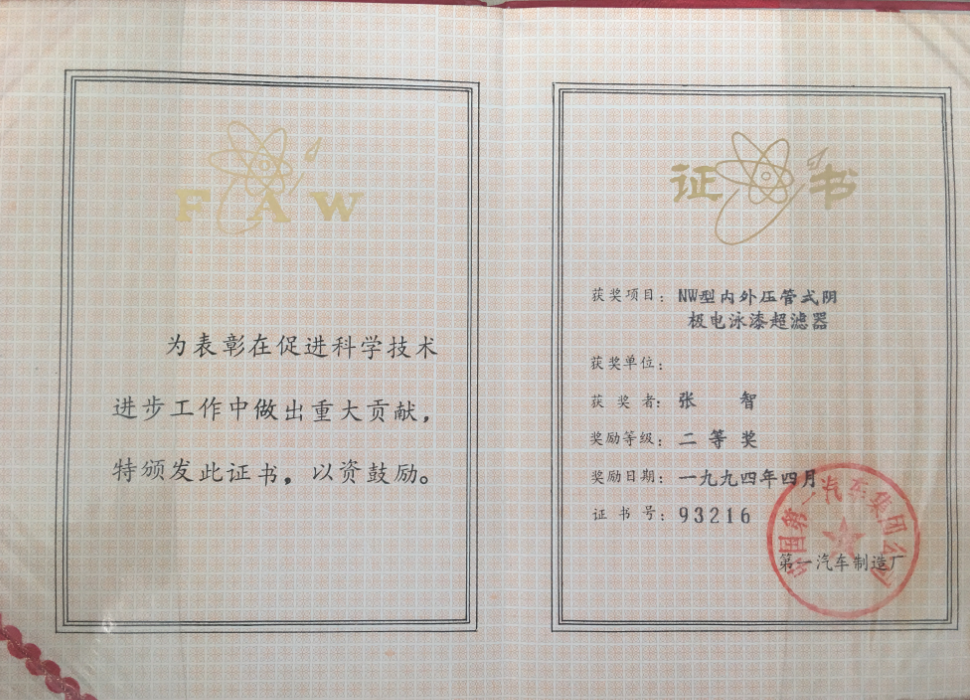 FAW
为表彰在促进科学技术
进步工作中做出重大贡献，
特颁发此证书，以资鼓励。
证书
获奖项目：NW型内外压管式阴
极电泳漆超滤器
获奖单位：
获奖者：张 智
奖励等级：二等奖
奖励日期：一九九四年四月
证书号：93216
中国第一汽车集团公司
第一汽车制造厂